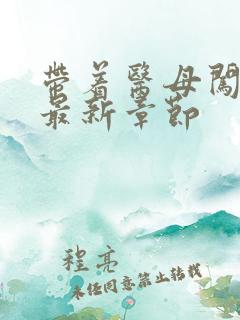 带着医毋闯
最新章节
程亮
未经同意禁止转载